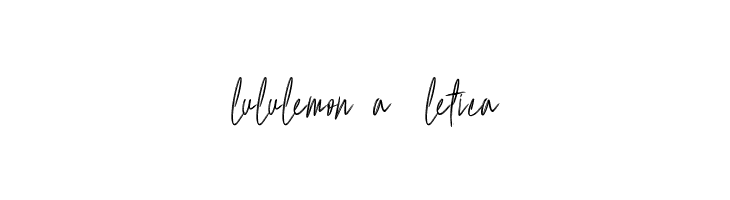 lululemon a  letica